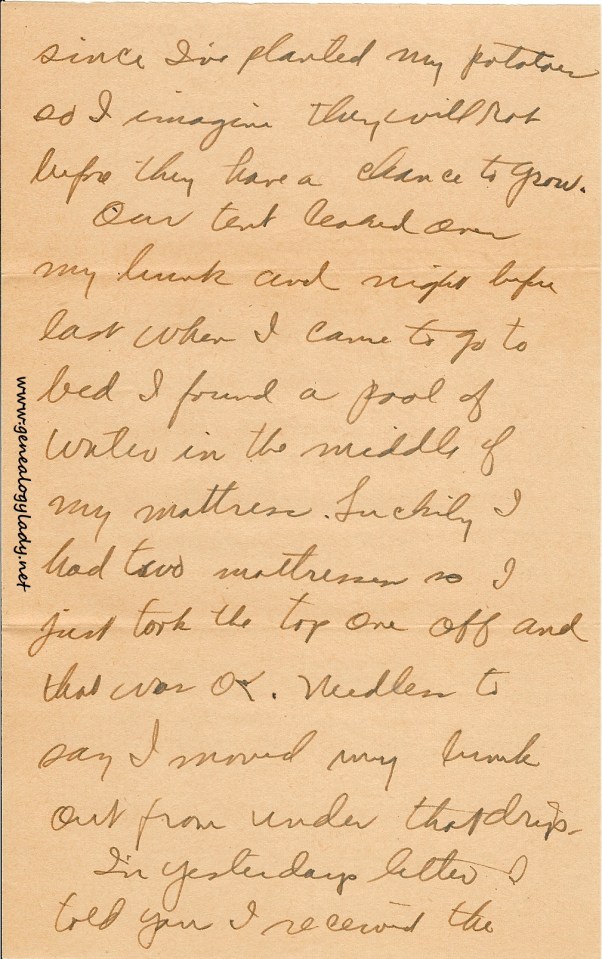 since I've planted my potatoes
so I imagine they will rot
before they have a chance to grow.
Our tent leaked over
my bunk and night before
last when I came to go to
bed I found a pool of
water in the middle of
my mattress. Luckily I
had two mattresses so I
just took the top one off and
that was OK. Needless to
say I moved my bunk
out from under that drip.
In yesterdays letter I
told you I received the
www.genealogylady.net